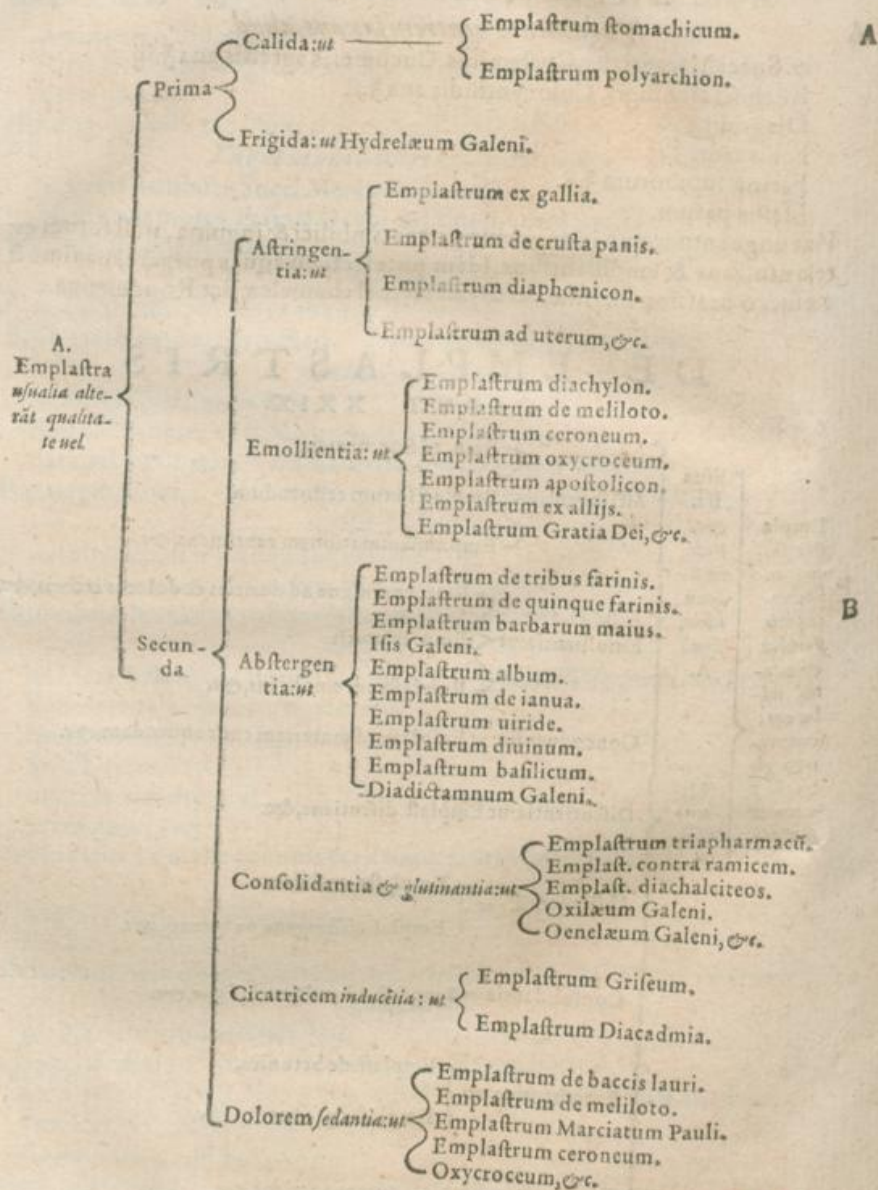 Calida: ut
Emplaſtrum ſtomachicum.
A
Emplaſtrum polyarchion.
Prima
Frigida: ut Hydrelæum Galeni.
Emplaſtrum ex gallia.
Aſtringen-
tia: ut
Emplaſtrum de cruſta panis.
Emplaſtrum diaphœnicon.
Emplaſtrum ad uterum, &c.
A.
Emplaſtra
uſualia alte-
rāt qualita-
te uel
Emollientia: ut
Emplaſtrum diachylon.
Emplaſtrum de meliloto.
Emplaſtrum ceroneum.
Emplaſtrum oxycroceum.
Emplaſtrum apoſtolicon.
Emplaſtrum ex allijs.
Emplaſtrum Gratia Dei, &c.
B
Secun-
da
Abſtergen
tia: ut
Emplaſtrum de tribus farinis.
Emplaſtrum de quinque farinis.
Emplaſtrum barbarum maius.
Iſis Galeni.
Emplaſtrum album.
Emplaſtrum de ianua.
Emplaſtrum uiride.
Emplaſtrum diuinum.
Emplaſtrum baſilicum.
Diadictamnum Galeni.
Conſolidantia & glutinantia: ut
Emplaſtrum triapharmacū.
Emplaſt. contra ramicem.
Emplaſt. diachalciteos.
Oxilæum Galeni.
Oenelæum Galeni, &c.
Cicatricem inducētia: ut
Emplaſtrum Griſeum.
Emplaſtrum Diacadmia.
Dolorem ſedantia: ut
Emplaſtrum de baccis lauri.
Emplaſtrum de meliloto.
Emplaſtrum Marciatum Pauli.
Emplaſtrum ceroneum.
Oxycroceum, &c.